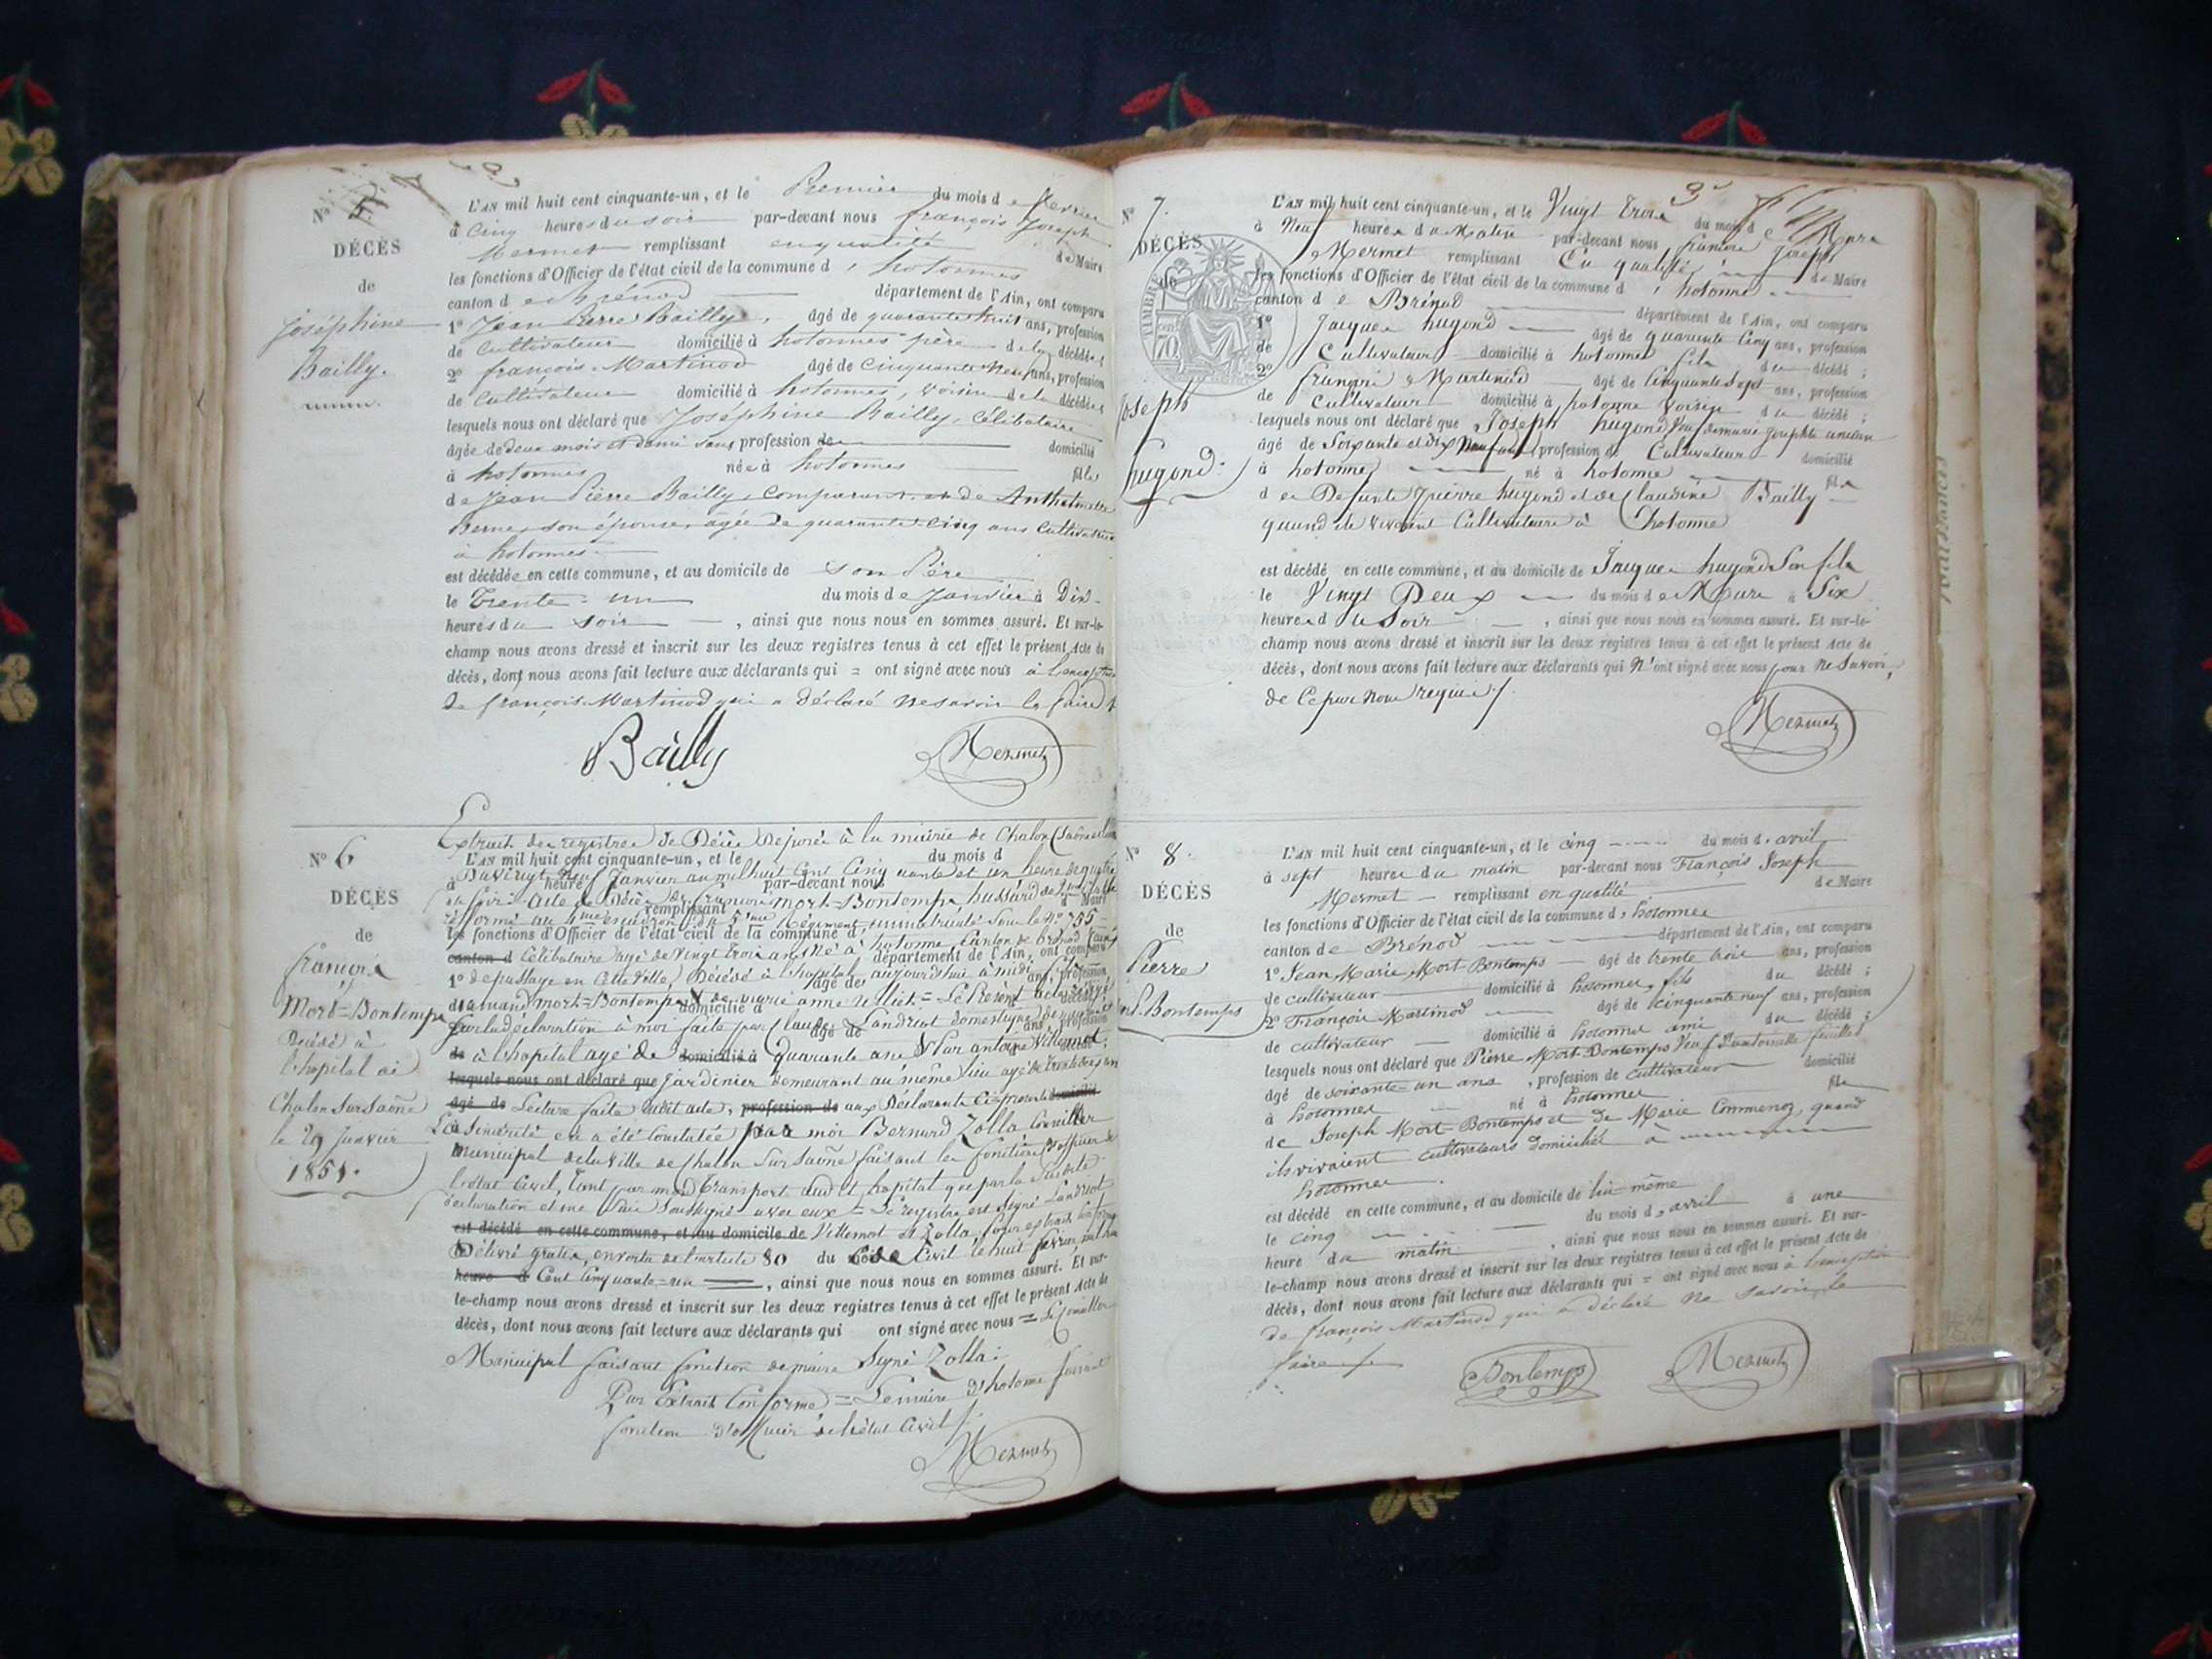 N° 5.
DÉCÈS
de
Joséphine
Bailly.
L'AN mil huit cent cinquante-un, et le Premier du mois de février
à cinq heures du soir par-devant nous françois Joseph
Mermet remplissant en qualité de Maire
les fonctions d'Officier de l'état civil de la commune d'hotonnes
canton de Brénod département de l'Ain, ont comparu
1° Jean Pierre Bailly, âgé de quarante huit ans, profession
de Cultivateur domicilié à hotonnes père de la décédée;
2° françois Martinod âgé de cinquante neuf ans, profession
de Cultivateur domicilié à hotonnes, voisin de la décédée;
lesquels nous ont déclaré que Joséphine Bailly, célibataire
âgée de deux mois et demi sans profession de domicilié
à hotonnes née à hotonnes fille
de Jean Pierre Bailly, comparant et de Anthelmette
Berne, son épouse, agée de quarante cinq ans cultivatrice
à hotonnes
est décédée en cette commune, et au domicile de son Père
le Trente-un du mois de Janvier à Dix
heures du soir, ainsi que nous nous en sommes assuré. Et sur-le-
champ nous avons dressé et inscrit sur les deux registres tenus à cet effet le présent Acte de
décès, dont nous avons fait lecture aux déclarants qui = ont signé avec nous à l'exception
de françois Martinod qui a déclaré ne savoir le faire
Bailly Mermet
N° 6
DÉCÈS
de
françois
Mort=Bontemps
Décédé à
l'hopital de
Chalon Sur Saône
le 29 Janvier
1851.
Extrait des registres de Décès Déposés à la mairie de Chalon (Saône et Loire
L'AN mil huit cent cinquante-un, et le du mois d
Du vingt neuf Janvier an mil huit cent cinquante et un heure de quatre
à heure par-devant nous
du soir Acte de Décès de françois Mort=Bontemps, hussard de 2me classe
remplissant d Maire
réformé au 4me escadron du 5me Régiment, immatriculé sous le N° 755
les fonctions d'Officier de l'état civil de la commune d
canton d Célibataire agé de vingt trois ans né à hotonne Canton de brénod (ain)
département de l'Ain, ont comparu
1° de passage en cette ville, Décédé à l'hopital aujourd'hui à midi
âgé de ans, profession
de amand Mort=Bontemps et de marie anne = Le Présent acte
domicilié à décédé;
sur la déclaration à moi faite par Claude Landriot domestique
âgé de ans, profession
de à l'hopital agé de domicilié à quarante ans & Par antoine Villemot
lesquels nous ont déclaré que jardinier demeurant au même lieu agé de trente
âgé de Lecture faite dudit acte, profession de aux Déclarants domicilié
La Sincérité en a été Constatée par moi Bernard Zolla Conseiller
Municipal de la ville de Chalon Sur Saône faisant les fonctions d'officier de
l'état Civil, tant par mon transport audit hopital que par la susdite
déclaration et me suis soussigné avec eux = Le registre est signé Landriot
est décédé en cette commune, et au domicile de Villemot et Zolla pour extrait conforme
Délivré gratis, en vertu de l'article 80 du Code Civil le huit fevrier mil huit
heure d Cent Cinquante=un, ainsi que nous nous en sommes assuré. Et sur-
le-champ nous avons dressé et inscrit sur les deux registres tenus à cet effet le présent Acte de
décès, dont nous avons fait lecture aux déclarants qui ont signé avec nous = Le Conseiller
Municipal faisant fonction de maire Signé Zolla.
Pur Extrait Conforme = Le maire d'hotonne faisant
fonction d'officier de l'état Civil
Mermet
N° 7.
DÉCÈS
de
TIMBRE
70
Joseph
hugond.
3e
L'AN mil huit cent cinquante-un, et le Vingt trois du mois de Mars
à Neuf heures du Matin par-devant nous francois Joseph
Mermet remplissant En qualité de Maire
les fonctions d'Officier de l'état civil de la commune d'hotonne
canton de Brénod département de l'Ain, ont comparu
1° Jacques hugond âgé de quarante Cinq ans, profession
de Cultivateur domicilié à hotonne fils du décédé;
2° françois Martinod âgé de Cinquante Sept ans, profession
de Cultivateur domicilié à hotonne Voisin du décédé;
lesquels nous ont déclaré que Joseph hugond Veuf de marie Josephte
âgé de Soixante et dix Neuf ans profession de Cultivateur domicilié
à hotonne né à hotonne fils
de Defunts Pierre hugond et de Claudine Bailly
quand ils vivoient Cultivateurs à hotonne
est décédé en cette commune, et au domicile de Jacques hugond Son fils
le Vingt Deux du mois de Mars à Six
heures du Soir, ainsi que nous nous en sommes assuré. Et sur-le-
champ nous avons dressé et inscrit sur les deux registres tenus à cet effet le présent Acte de
décès, dont nous avons fait lecture aux déclarants qui N'ont signé avec nous pour ne Savoir,
de Ce par nous requis
Mermet
N° 8.
DÉCÈS
de
Pierre
Bontemps
L'AN mil huit cent cinquante-un, et le cinq du mois d'avril
à sept heures du matin par-devant nous François Joseph
Mermet remplissant en qualité de Maire
les fonctions d'Officier de l'état civil de la commune d'hotonnes
canton de Brénod département de l'Ain, ont comparu
1° Jean Marie Mort-Bontemps âgé de trente trois ans, profession
de cultivateur domicilié à hotonnes, fils du décédé;
2° François Martinod âgé de cinquante neuf ans, profession
de cultivateur domicilié à hotonnes ami du décédé;
lesquels nous ont déclaré que Pierre Mort-Bontemps Veuf
âgé de soixante-un ans, profession de cultivateur domicilié
à hotonnes né à hotonnes fils
de Joseph Mort-Bontemps et de Marie Commenoz, quand
ils vivaient cultivateurs domiciliés à
hotonnes.
est décédé en cette commune, et au domicile de lui même
le cinq du mois d'avril à une
heure du matin, ainsi que nous nous en sommes assuré. Et sur-
le-champ nous avons dressé et inscrit sur les deux registres tenus à cet effet le présent Acte de
décès, dont nous avons fait lecture aux déclarants qui = ont signé avec nous à l'exception
de françois Martinod qui a déclaré ne savoir le
faire
Bontemps Mermet